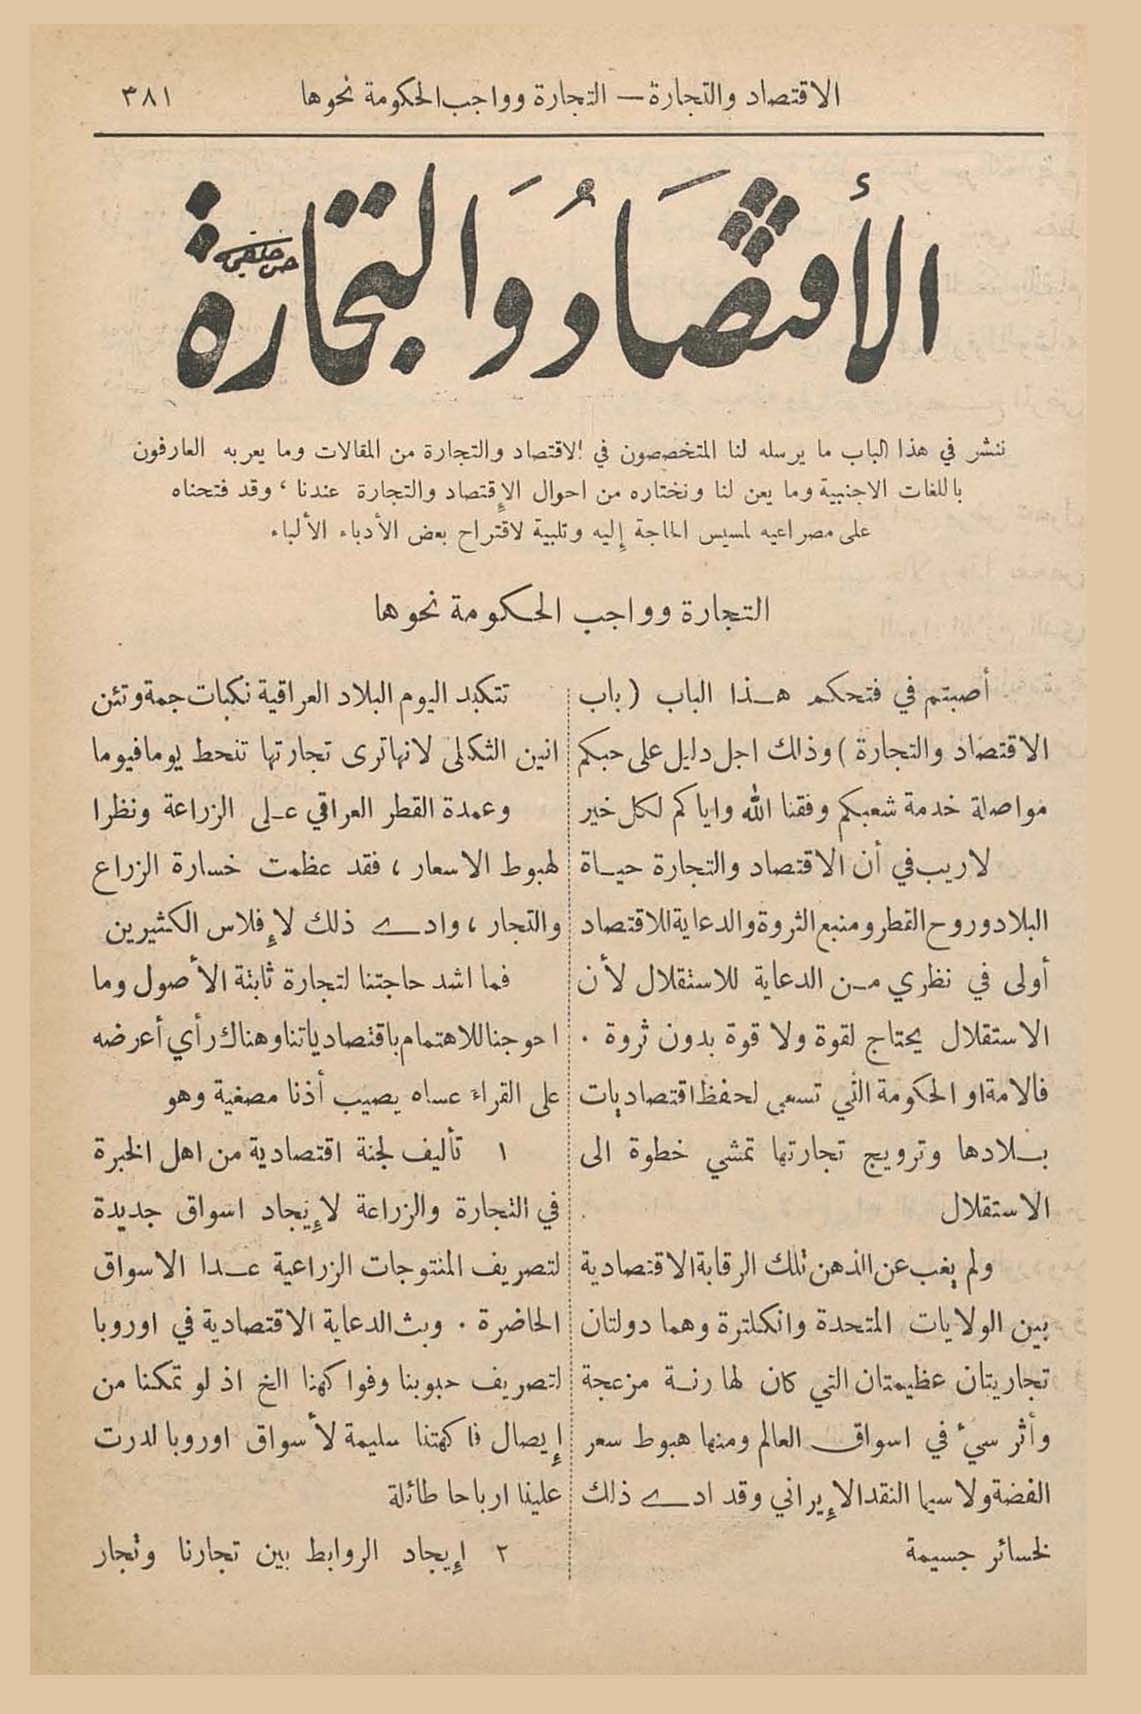 الاقتصاد والتجارة — التجارة وواجب الحكومة نحوها
٣٨١
الأقتصاد والتجارة
ننشر في هذا الباب ما يرسله لنا المتخصصون في الاقتصاد والتجارة من المقالات وما يعربه العارفون
باللغات الاجنبية وما يعن لنا ونختاره من احوال الإقتصاد والتجارة عندنا ، وقد فتحناه
على مصراعيه لمسيس الحاجة إليه وتلبية لاقتراح بعض الأدباء الألباء .
التجارة وواجب الحكومة نحوها
أصبتم في فتحكم هـذا الباب ( باب
الاقتصاد والتجارة ) وذلك اجل دليل على حبكم
مواصلة خدمة شعبكم وفقنا الله واياكم لكل خير
لاريب في أن الاقتصاد والتجارة حيـاة
البلاد وروح القطر ومنبع الثروة والدعاية للاقتصاد
أولى في نظري مـن الدعاية للاستقلال لأن
الاستقلال يحتاج لقوة ولا قوة بدون ثروة .
فالامة او الحكومة التي تسعى لحفظ اقتصاديات
بـلادها وترويج تجارتها تمشي خطوة الى
الاستقلال
ولم يغب عن الذهن تلك الرقابة الاقتصادية
بين الولايات المتحدة وانكلترة وهما دولتان
تجاريتان عظيمتان التي كان لها رنـة مزعجة
وأثر سيء في اسواق العالم ومنها هبوط سعر
الفضة ولا سيما النقد الإيراني وقد ادى ذلك
لخسائر جسيمة
تتكبد اليوم البلاد العراقية نكبات جمة وتئن
انين الثكلى لانها ترى تجارتها تنحط يوما فيوما
وعمدة القطر العراقي عـلى الزراعة ونظرا
لهبوط الاسعار ، فقد عظمت خسارة الزراع
والتجار ، وادى ذلك لإفلاس الكثيرين
فما اشد حاجتنا لتجارة ثابتة الأصول وما
احوجنا للاهتمام باقتصادياتنا وهناك رأي أعرضه
على القراء عساه يصيب أذنا مصغية وهو
١ تأليف لجنة اقتصادية من اهل الخبرة
في التجارة والزراعة لإيجاد اسواق جديدة
لتصريف المنتوجات الزراعية عـدا الاسواق
الحاضرة . وبث الدعاية الاقتصادية في اوروبا
لتصريف حبوبنا وفواكهنا الخ اذ لو تمكنا من
إيصال فاكهتنا سليمة لأسواق اوروبا لدرت
علينا ارباحا طائلة
٢ إيجاد الروابط بين تجارنا وتجار